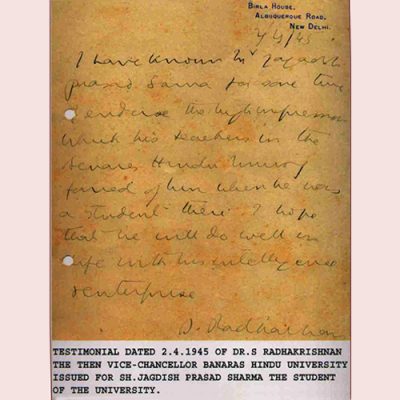 BIRLA HOUSE,
ALBUQUERQUE ROAD,
NEW DELHI.
2/4/45
I have known Mr Jagadish
prasad. Sarma for some time
I endorse the high impression
which his teachers in the
Benares Hindu University
formed of him when he was
a student there. I hope
that he will do well in
life with his intelligence
& enterprise
S. Radhakrishnan
TESTIMONIAL DATED 2.4.1945 OF DR.S RADHAKRISHNAN
THE THEN VICE-CHANCELLOR BANARAS HINDU UNIVERSITY
ISSUED FOR SH.JAGDISH PRASAD SHARMA THE STUDENT
OF THE UNIVERSITY.